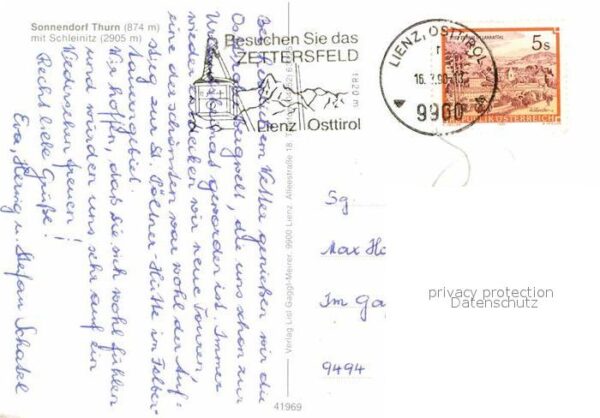 Sonnendorf Thurn (874 m)
mit Schleinitz (2905 m)
Besuchen Sie das
ZETTERSFELD
1820 m
Lienz Osttirol
LIENZ, OSTTIROL
9900
5s
REPUBLIK ÖSTERREICH
Bei herrlichem Wetter genießen wir die
Osttiroler Bergwelt, die uns schon zur
Heimat geworden ist. Immer
wieder entdecken wir neue Touren
eine der schönsten war wohl der Auf-
stieg zur St. Pöltner-Hütte im Felber-
tauerngebiet.
Wir hoffen, daß Sie sich wohl fühlen
und würden uns sehr auf ein
Wiedersehen freuen!
Recht liebe Grüße!
Eva, u. Stefan Schatel
Verlag Lisl Gaggl-Meirer, 9900 Lienz, Alleestraße 18,
41969
Sg
Max
Im
9494
privacy protection
Datenschutz